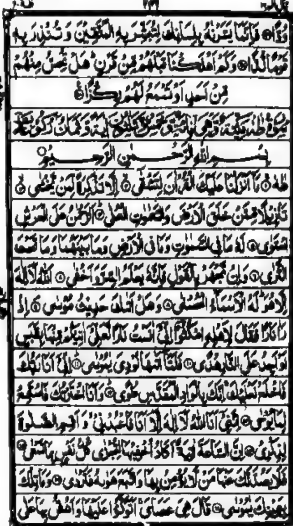 وُدًّا ۞ فَاِنَّمَا يَسَّرْنٰهُ بِلِسَانِكَ لِتُبَشِّرَ بِهِ الْمُتَّقِيْنَ وَ تُنْذِرَ بِهٖ
قَوْمًا لُّدًّا ۞ وَكَمْ اَهْلَكْنَا قَبْلَهُمْ مِّنْ قَرْنٍ ؕ هَلْ تُحِسُّ مِنْهُمْ
مِّنْ اَحَدٍ اَوْ تَسْمَعُ لَهُمْ رِكْزًا ۞
بِسْمِ اللّٰهِ الرَّحْمٰنِ الرَّحِيْمِ
طٰهٰ ۞ مَاۤ اَنْزَلْنَا عَلَيْكَ الْقُرْاٰنَ لِتَشْقٰۤى ۞ اِلَّا تَذْكِرَةً لِّمَنْ يَّخْشٰى ۞
تَنْزِيْلًا مِّمَّنْ خَلَقَ الْاَرْضَ وَالسَّمٰوٰتِ الْعُلٰى ۞ اَلرَّحْمٰنُ عَلَى الْعَرْشِ
اسْتَوٰى ۞ لَهٗ مَا فِى السَّمٰوٰتِ وَمَا فِى الْاَرْضِ وَمَا بَيْنَهُمَا وَمَا تَحْتَ
الثَّرٰى ۞ وَاِنْ تَجْهَرْ بِالْقَوْلِ فَاِنَّهٗ يَعْلَمُ السِّرَّ وَاَخْفٰى ۞ اَللّٰهُ لَاۤ اِلٰهَ
اِلَّا هُوَ ؕ لَهُ الْاَسْمَآءُ الْحُسْنٰى ۞ وَهَلْ اَتٰىكَ حَدِيْثُ مُوْسٰى ۞ اِذْ
رَاٰ نَارًا فَقَالَ لِاَهْلِهِ امْكُثُوْۤا اِنِّىْۤ اٰنَسْتُ نَارًا لَّعَلِّىْۤ اٰتِيْكُمْ مِّنْهَا بِقَبَسٍ
اَوْ اَجِدُ عَلَى النَّارِ هُدًى ۞ فَلَمَّاۤ اَتٰىهَا نُوْدِىَ يٰمُوْسٰى ۞ اِنِّىْۤ اَنَا رَبُّكَ
فَاخْلَعْ نَعْلَيْكَ ۚ اِنَّكَ بِالْوَادِ الْمُقَدَّسِ طُوًى ۞ وَاَنَا اخْتَرْتُكَ فَاسْتَمِعْ
لِمَا يُوْحٰى ۞ اِنَّنِىْۤ اَنَا اللّٰهُ لَاۤ اِلٰهَ اِلَّاۤ اَنَا فَاعْبُدْنِىْ ۙ وَ اَقِمِ الصَّلٰوةَ
لِذِكْرِىْ ۞ اِنَّ السَّاعَةَ اٰتِيَةٌ اَكَادُ اُخْفِيْهَا لِتُجْزٰى كُلُّ نَفْسٍۭ بِمَا تَسْعٰى ۞
فَلَا يَصُدَّنَّكَ عَنْهَا مَنْ لَّا يُؤْمِنُ بِهَا وَاتَّبَعَ هَوٰىهُ فَتَرْدٰى ۞ وَمَا تِلْكَ
بِيَمِيْنِكَ يٰمُوْسٰى ۞ قَالَ هِىَ عَصَاىَ ۚ اَتَوَكَّؤُا عَلَيْهَا وَاَهُشُّ بِهَا عَلٰى